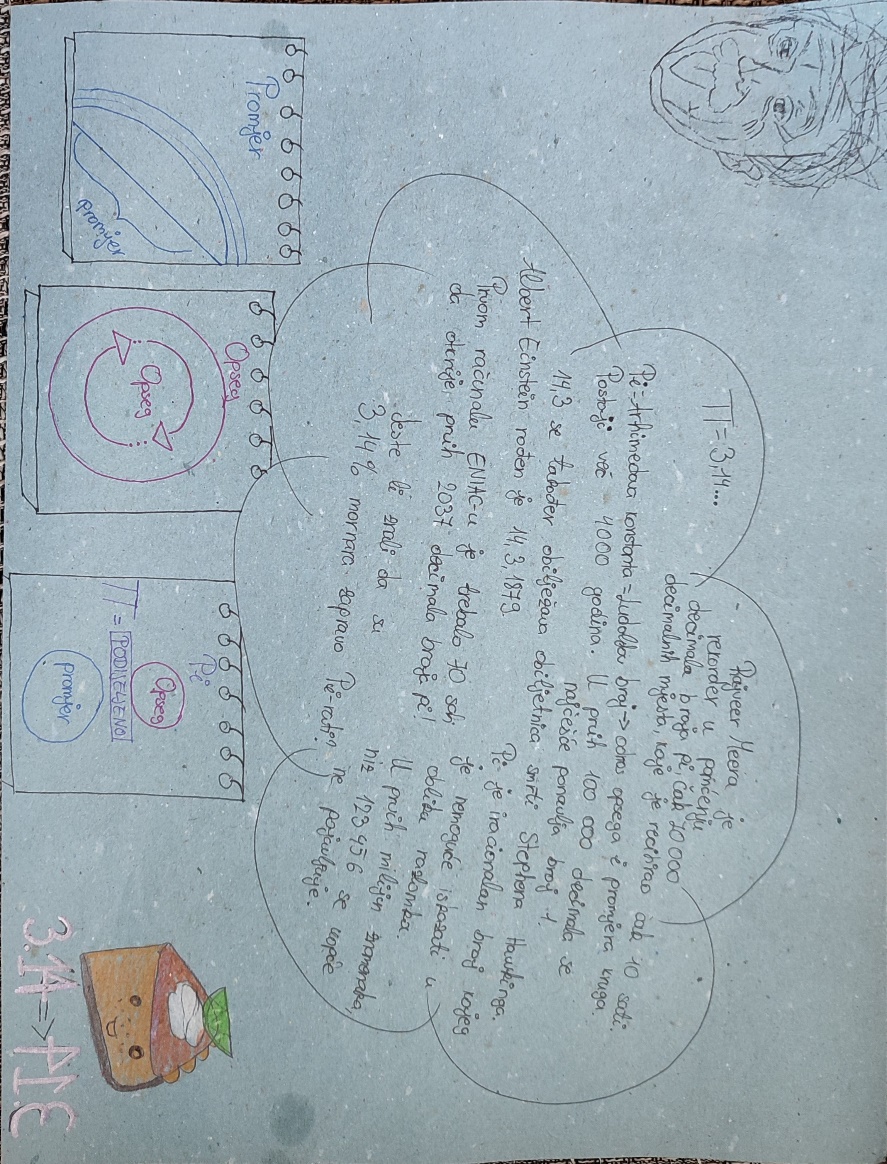 π = 3,14...
- Rajveer Meena je
rekorder u pamćenju
decimala broja pi, čak 70 000
decimalnih mjesta, koje je recitirao čak 10 sati.
Pi = Arhimedova konstanta = Ludolfov broj → odnos opsega i promjera kruga.
Postoji već 4000 godina. U prvih 100 000 decimala se
najčešće ponavlja broj 1.
14,3 se također obilježava obljetnica smrti Stephena Hawkinga.
Albert Einstein rođen je 14,3,1879
Pi je iracionalan broj kojeg
je nemoguće iskazati u
obliku razlomka.
Prvom računalu ENIAC-u je trebalo 70 sati
da otkrije prvih 2037 decimala broja pi!
U prvih milijun znamenaka,
niz 123456 se uopće
ne pojavljuje.
Jeste li znali da su
3,14% mornara zapravo Pi-rati?
Promjer
promjer
Opseg
Opseg
Pi
π =
Opseg
PODIJELJENO
promjer
3.14 => PIE